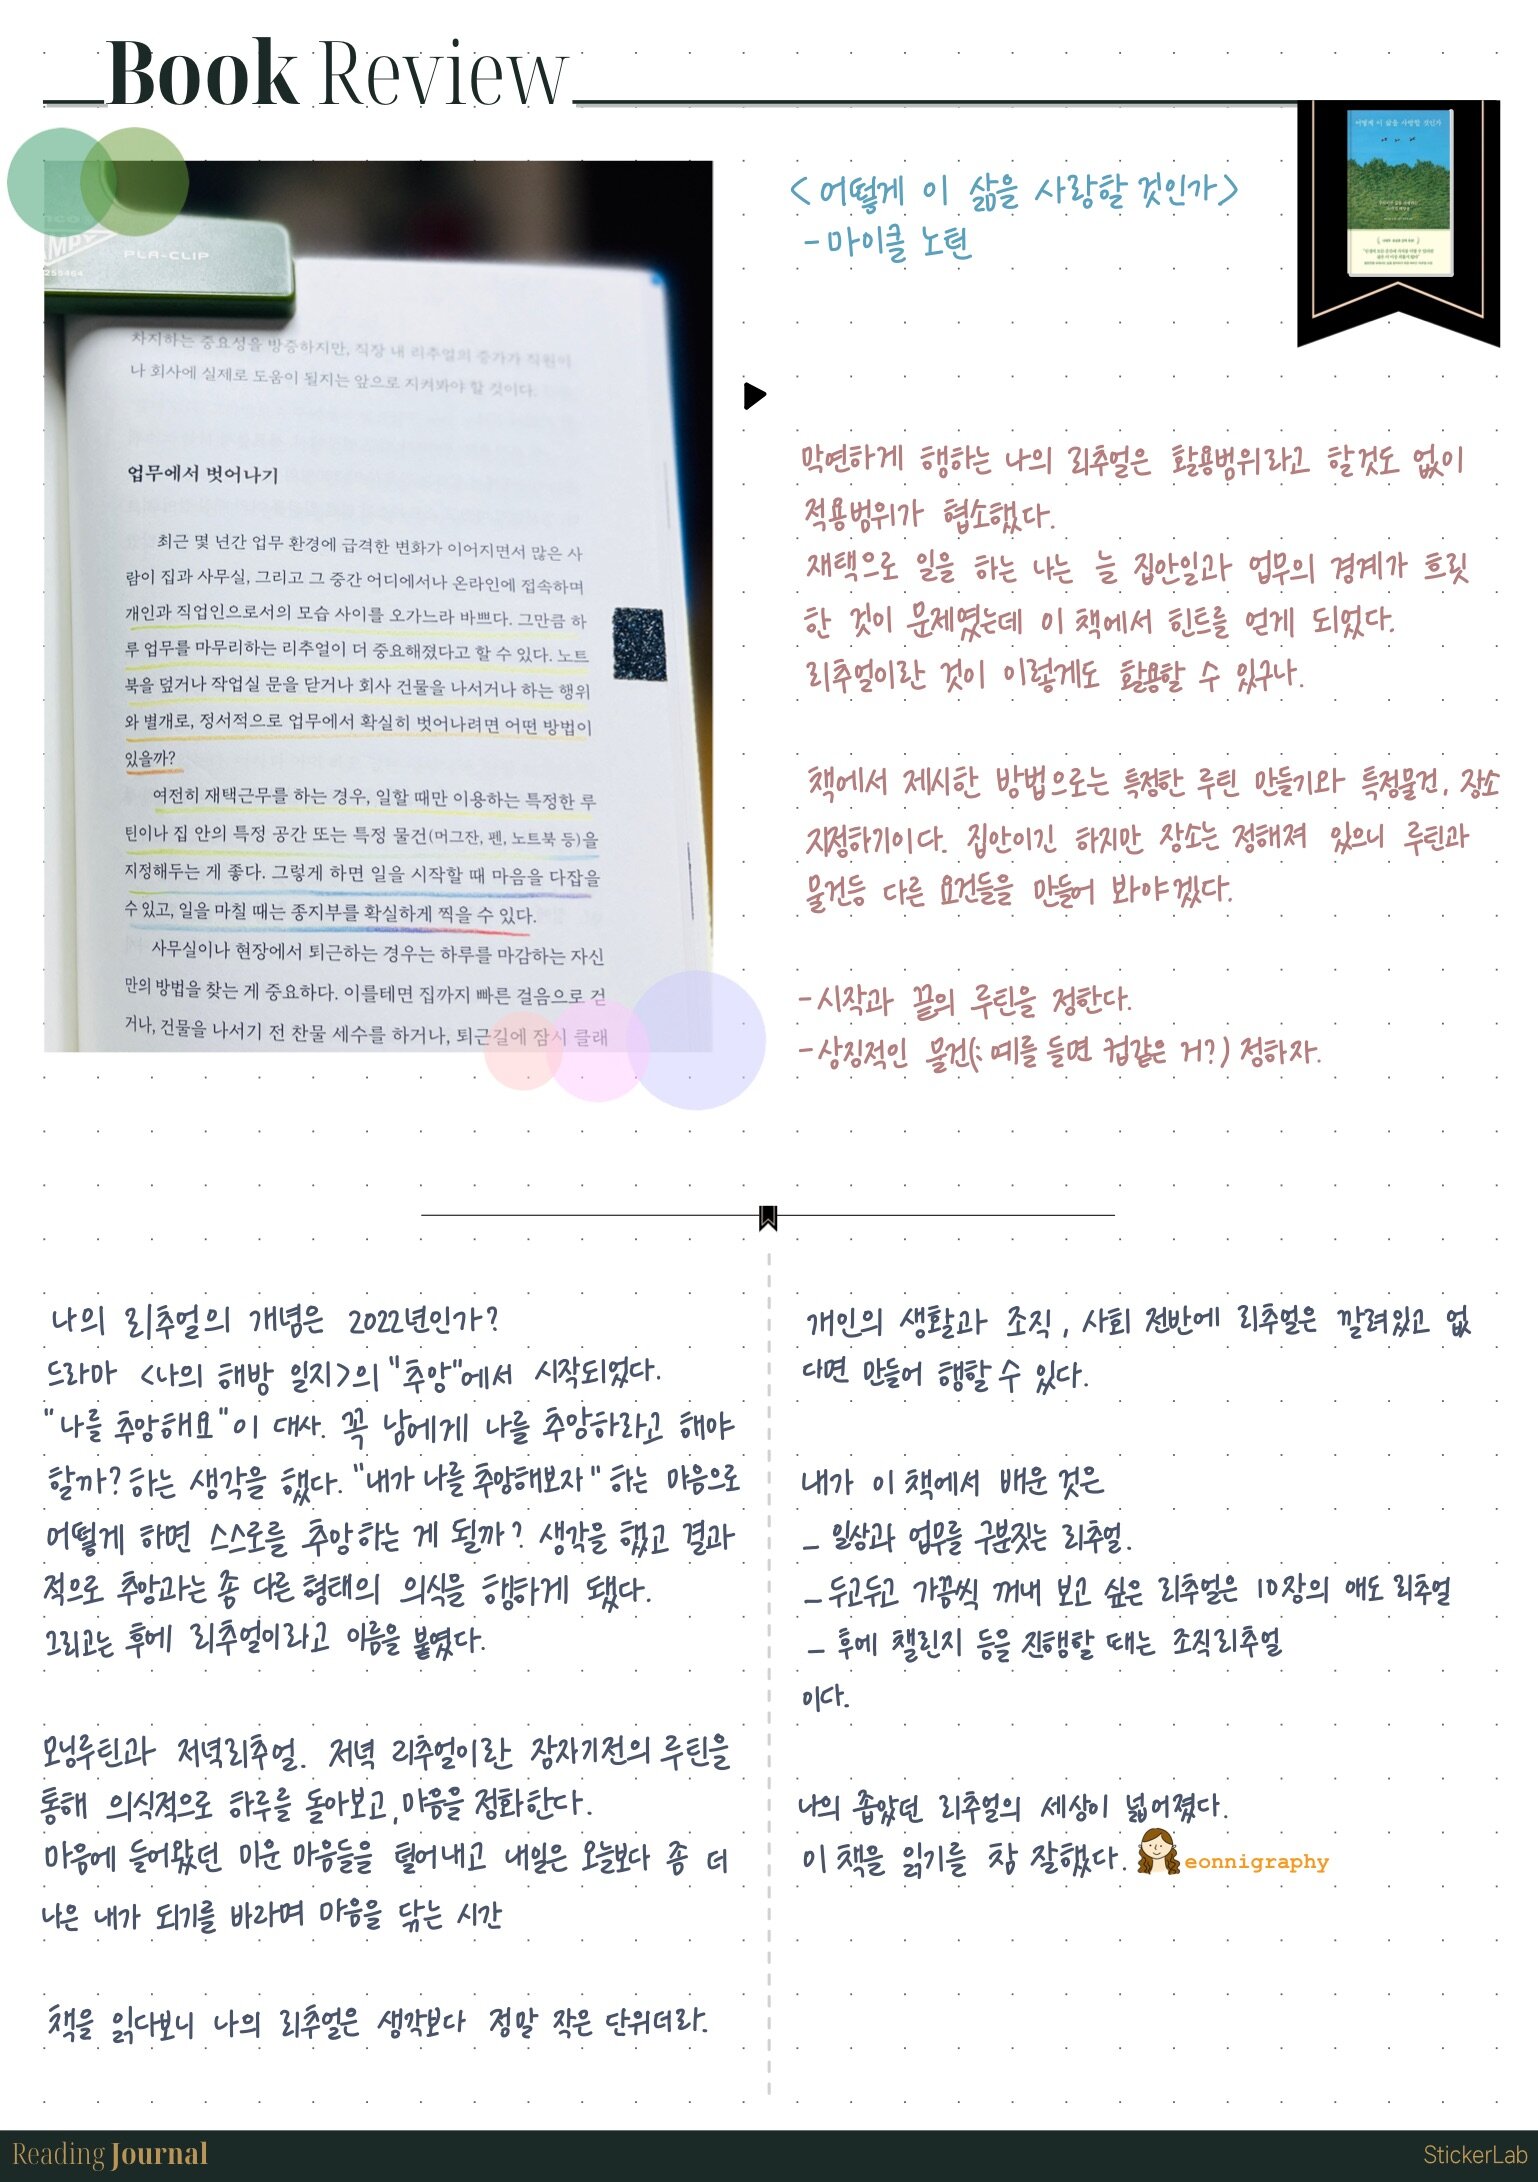 Book Review
PLA-CLIP
255464
차지하는 중요성을 방증하지만, 직장 내 리추얼의 증가가 직원이
나 회사에 실제로 도움이 될지는 앞으로 지켜봐야 할 것이다.
업무에서 벗어나기
최근 몇 년간 업무 환경에 급격한 변화가 이어지면서 많은 사
람이 집과 사무실, 그리고 그 중간 어디에서나 온라인에 접속하며
개인과 직업인으로서의 모습 사이를 오가느라 바쁘다. 그만큼 하
루 업무를 마무리하는 리추얼이 더 중요해졌다고 할 수 있다. 노트
북을 덮거나 작업실 문을 닫거나 회사 건물을 나서거나 하는 행위
와 별개로, 정서적으로 업무에서 확실히 벗어나려면 어떤 방법이
있을까?
여전히 재택근무를 하는 경우, 일할 때만 이용하는 특정한 루
틴이나 집 안의 특정 공간 또는 특정 물건(머그잔, 펜, 노트북 등)을
지정해두는 게 좋다. 그렇게 하면 일을 시작할 때 마음을 다잡을
수 있고, 일을 마칠 때는 종지부를 확실하게 찍을 수 있다.
사무실이나 현장에서 퇴근하는 경우는 하루를 마감하는 자신
만의 방법을 찾는 게 중요하다. 이를테면 집까지 빠른 걸음으로 걷
거나, 건물을 나서기 전 찬물 세수를 하거나, 퇴근길에 잠시 클래
<어떻게 이 삶을 사랑할 것인가>
- 마이클 노턴
어떻게 이 삶을 사랑할 것인가
막연하게 행하는 나의 리추얼은 활용범위라고 할것도 없이
적용범위가 협소했다.
재택으로 일을 하는 나는 늘 집안일과 업무의 경계가 흐릿
한 것이 문제였는데 이 책에서 힌트를 얻게 되었다.
리추얼이란 것이 이렇게도 활용할 수 있구나.
책에서 제시한 방법으로는 특정한 루틴 만들기와 특정물건, 장소
지정하기이다. 집안이긴 하지만 장소는 정해져 있으니 루틴과
물건등 다른 요건들을 만들어 봐야겠다.
- 시작과 끝의 루틴을 정한다.
- 상징적인 물건(: 예를 들면 컵같은 거?) 정하자.
나의 리추얼의 개념은 2022년인가?
드라마 <나의 해방 일지>의 "추앙"에서 시작되었다.
"나를 추앙해요"이 대사. 꼭 남에게 나를 추앙하라고 해야
할까? 하는 생각을 했다. "내가 나를 추앙해보자" 하는 마음으로
어떻게 하면 스스로를 추앙하는 게 될까? 생각을 했고 결과
적으로 추앙과는 좀 다른 형태의 의식을 행하게 됐다.
그리고는 후에 리추얼이라고 이름을 붙였다.
모닝루틴과 저녁리추얼. 저녁 리추얼이란 잠자기전의 루틴을
통해 의식적으로 하루를 돌아보고, 마음을 정화한다.
마음에 들어왔던 미운 마음들을 털어내고 내일은 오늘보다 좀 더
나은 내가 되기를 바라며 마음을 닦는 시간
책을 읽다보니 나의 리추얼은 생각보다 정말 작은 단위더라.
개인의 생활과 조직, 사회 전반에 리추얼은 깔려있고 없
다면 만들어 행할 수 있다.
내가 이 책에서 배운 것은
- 일상과 업무를 구분짓는 리추얼.
- 두고두고 가끔씩 꺼내 보고 싶은 리추얼은 10장의 애도 리추얼
- 후에 챌린지 등을 진행할 때는 조직리추얼
이다.
나의 좁았던 리추얼의 세상이 넓어졌다.
이 책을 읽기를 참 잘했다.
eonnigraphy
Reading Journal
StickerLab